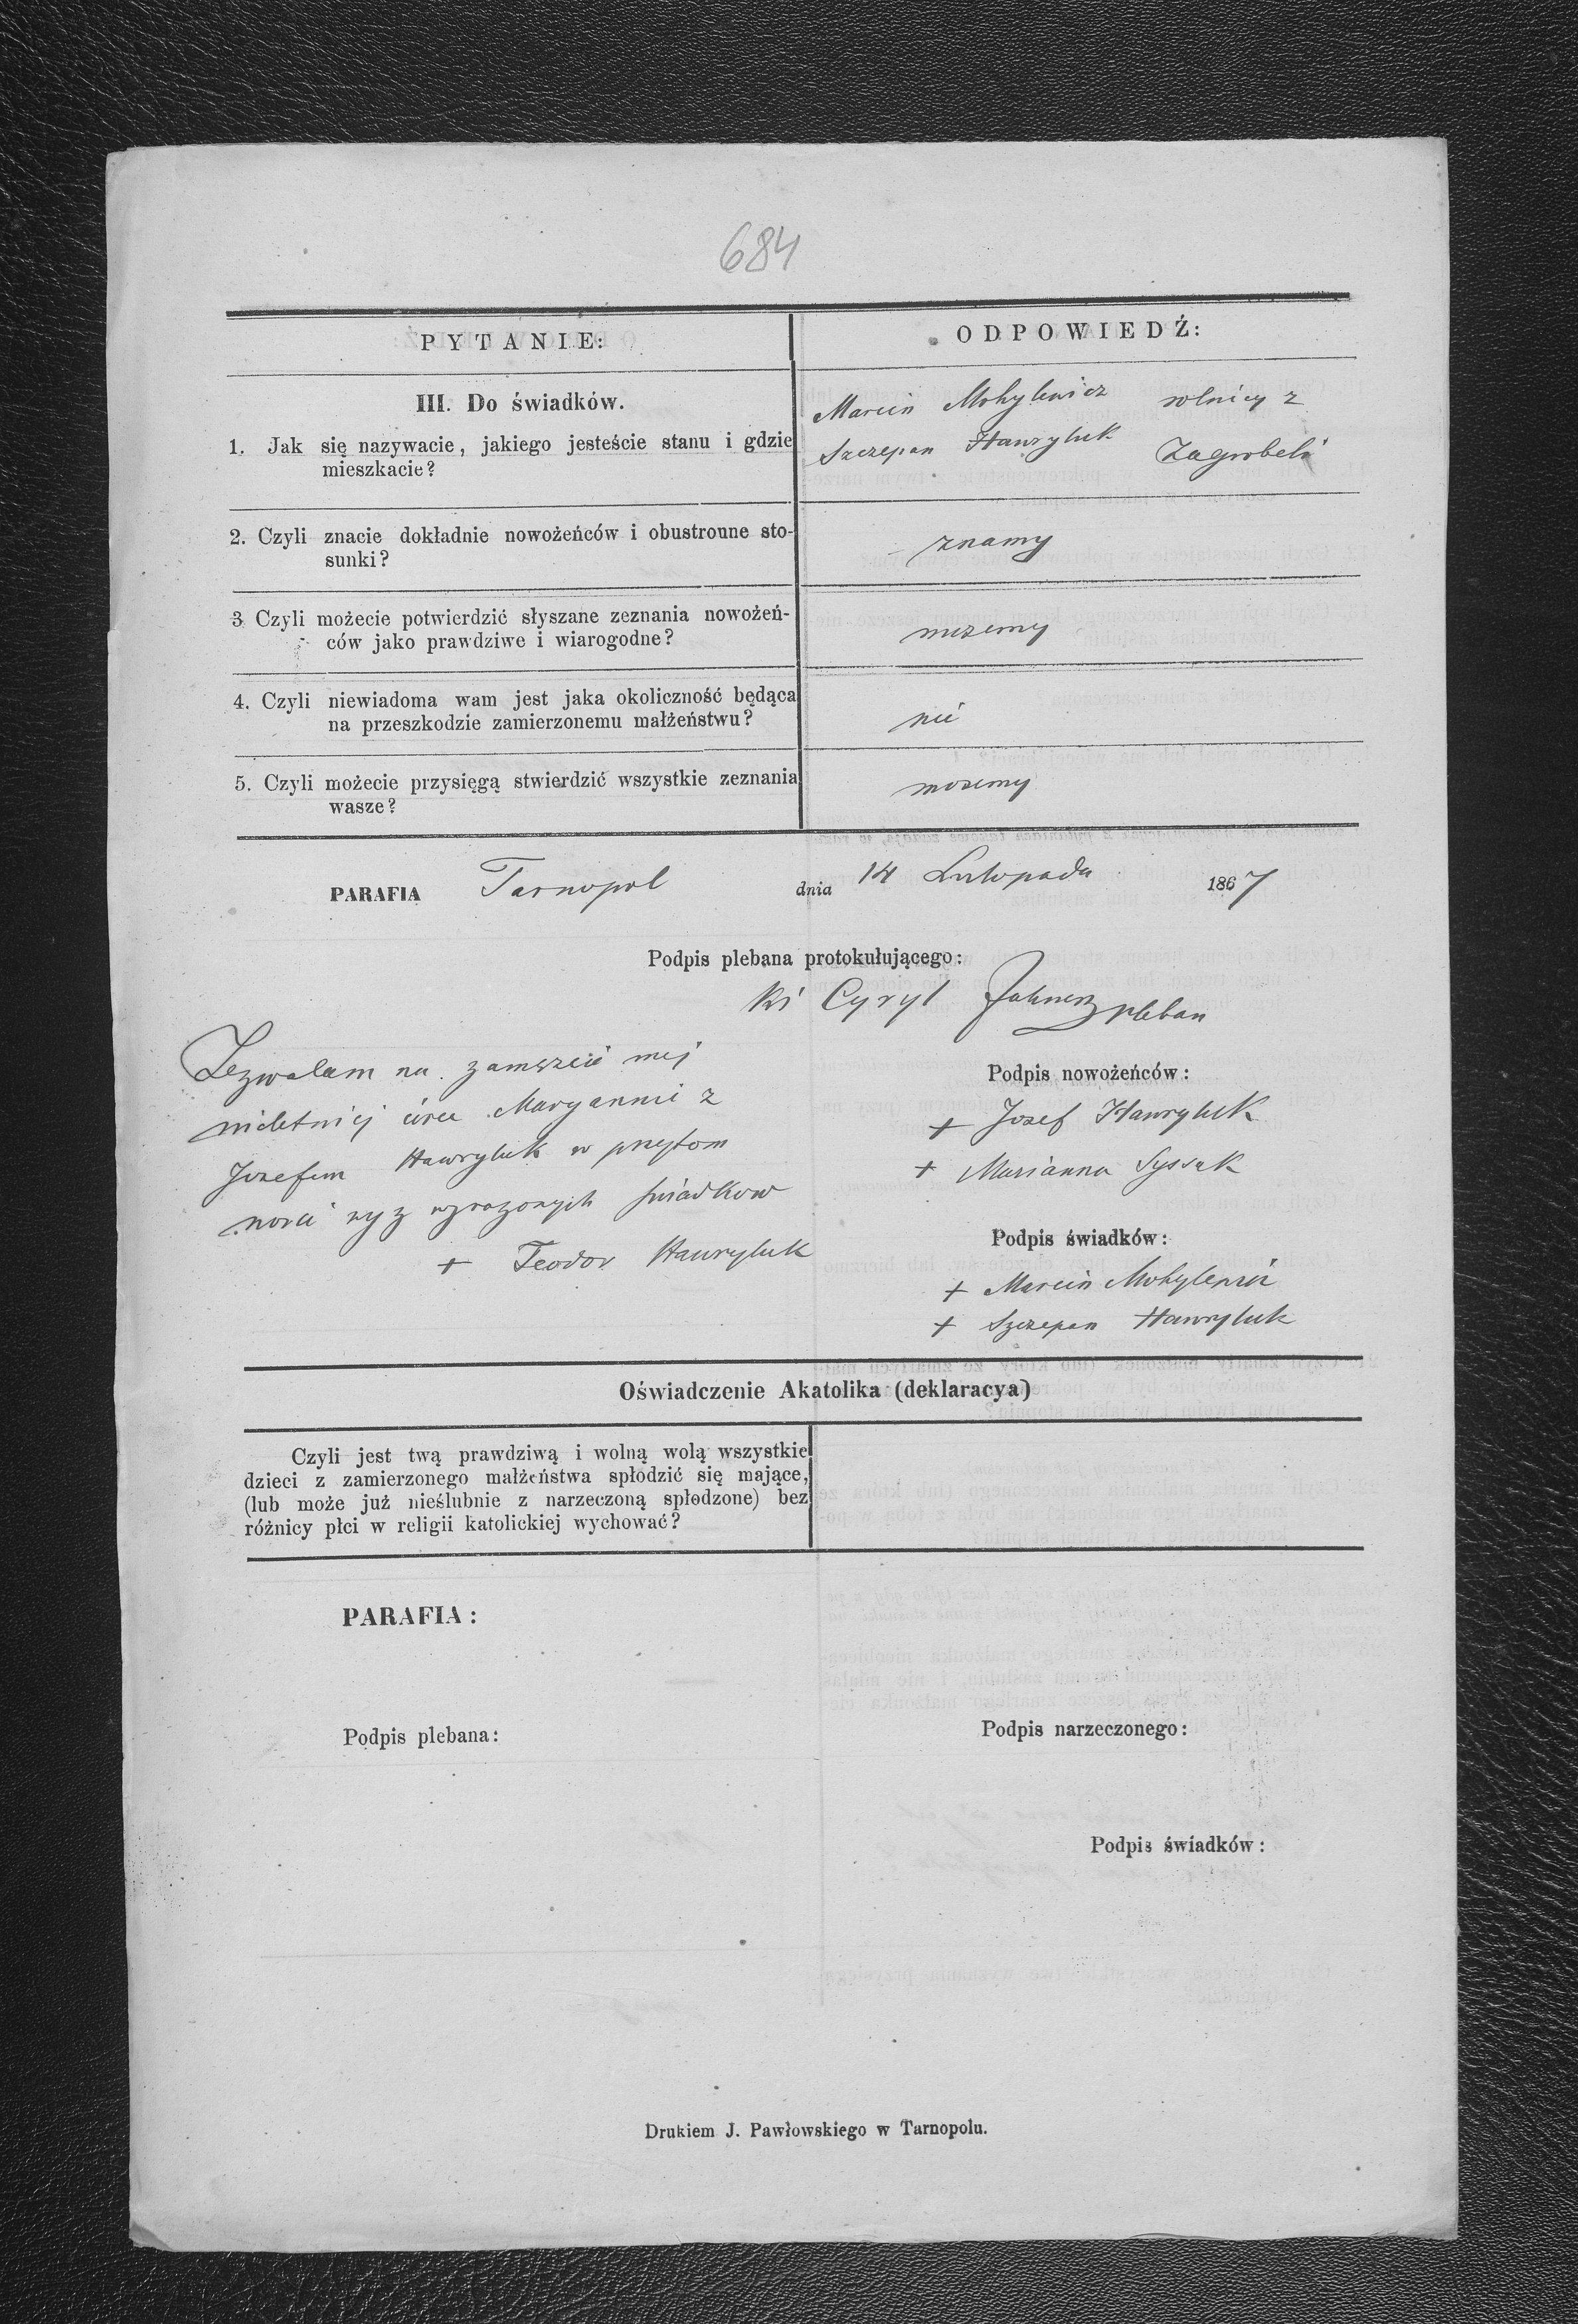 684
PYTANIE:
ODPOWIEDŹ:
III. Do świadków.
1. Jak się nazywacie, jakiego jesteście stanu i gdzie
mieszkacie?
Marcin Mohylewicz rolnicy z
Szczepan Hawryluk Zagrobeli
2. Czyli znacie dokładnie nowożeńców i obustronne sto-
sunki?
znamy
3 Czyli możecie potwierdzić słyszane zeznania nowożeń-
ców jako prawdziwe i wiarogodne?
mozemy
4. Czyli niewiadoma wam jest jaka okoliczność będąca
na przeszkodzie zamierzonemu małżeństwu?
nie
5. Czyli możecie przysięgą stwierdzić wszystkie zeznania
wasze?
mozemy
PARAFIA Tarnopol dnia 14 Listopada 1867
Podpis plebana protokułującego:
Cyryl pleban
Zezwalam na zamszcie mej
nieletniej Maryannie z
Jozefem Hawryluk w przytom
nosci wyz swiadkow
+ Teodor Hawryluk
Podpis nowożeńców:
+ Jozef Hawryluk
+ Marianna Syssak
Podpis świadków:
+ Marcin Mohylewicz
+ Szczepan Hawryluk
Oświadczenie Akatolika (deklaracya)
Czyli jest twą prawdziwą i wolną wolą wszystkie
dzieci z zamierzonego małżeństwa spłodzić się mające,
(lub może już nieślubnie z narzeczoną spłodzone) bez
różnicy płci w religii katolickiej wychować?
PARAFIA:
Podpis plebana:
Podpis narzeczonego:
Podpis świadków:
Drukiem J. Pawłowskiego w Tarnopolu.